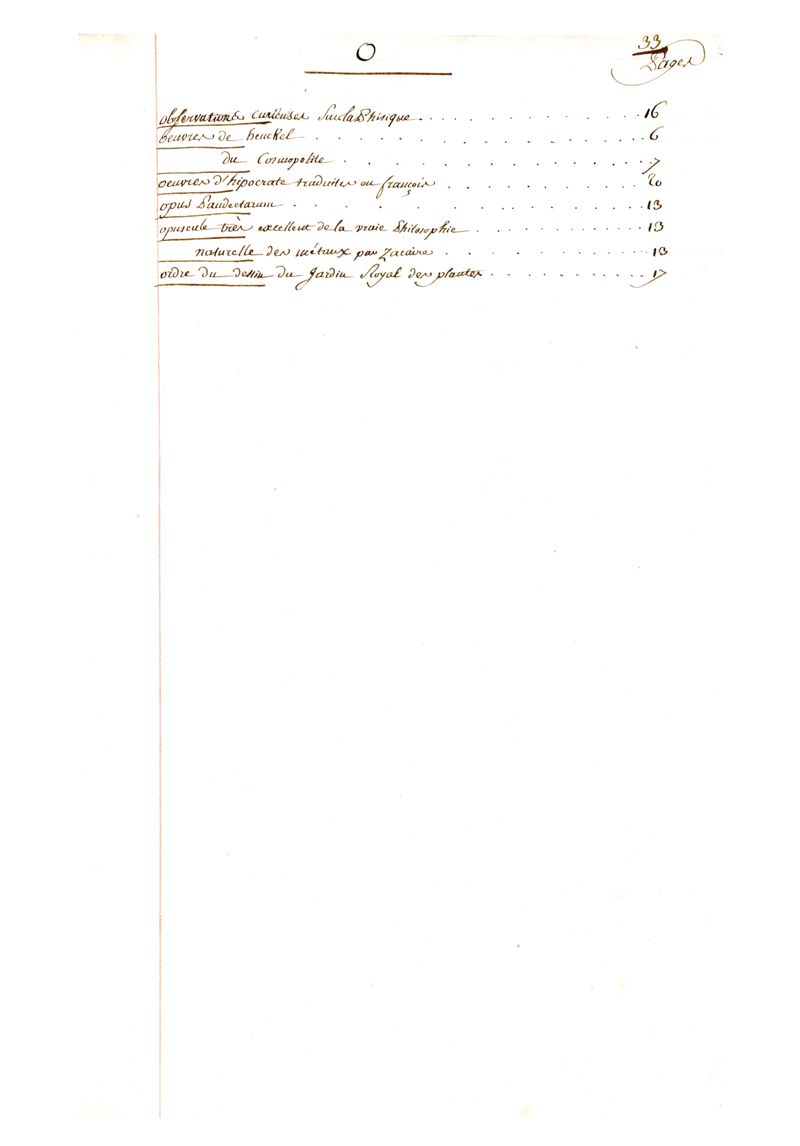 33
O
Pages
observations curieuses sur la Phisique . . . . . . . . . . . . . 16
oeuvres de henckel . . . . . . . . . . . . . . . 6
du Cosmopolite . . . . . . . . . . . . . 7
oeuvres d'hipocrate traduites en françois . . . . . . . . . . 20
opus Pandectarum . . . . . . . . . . . . . . 13
opuscule très excellent de la vraie Philosophie . . . . . . . . . . . 13
naturelle des métaux par Zacaire . . . . . . . . . . . . 13
ordre du dessin du Jardin Royal des plantes . . . . . . . . . . 17